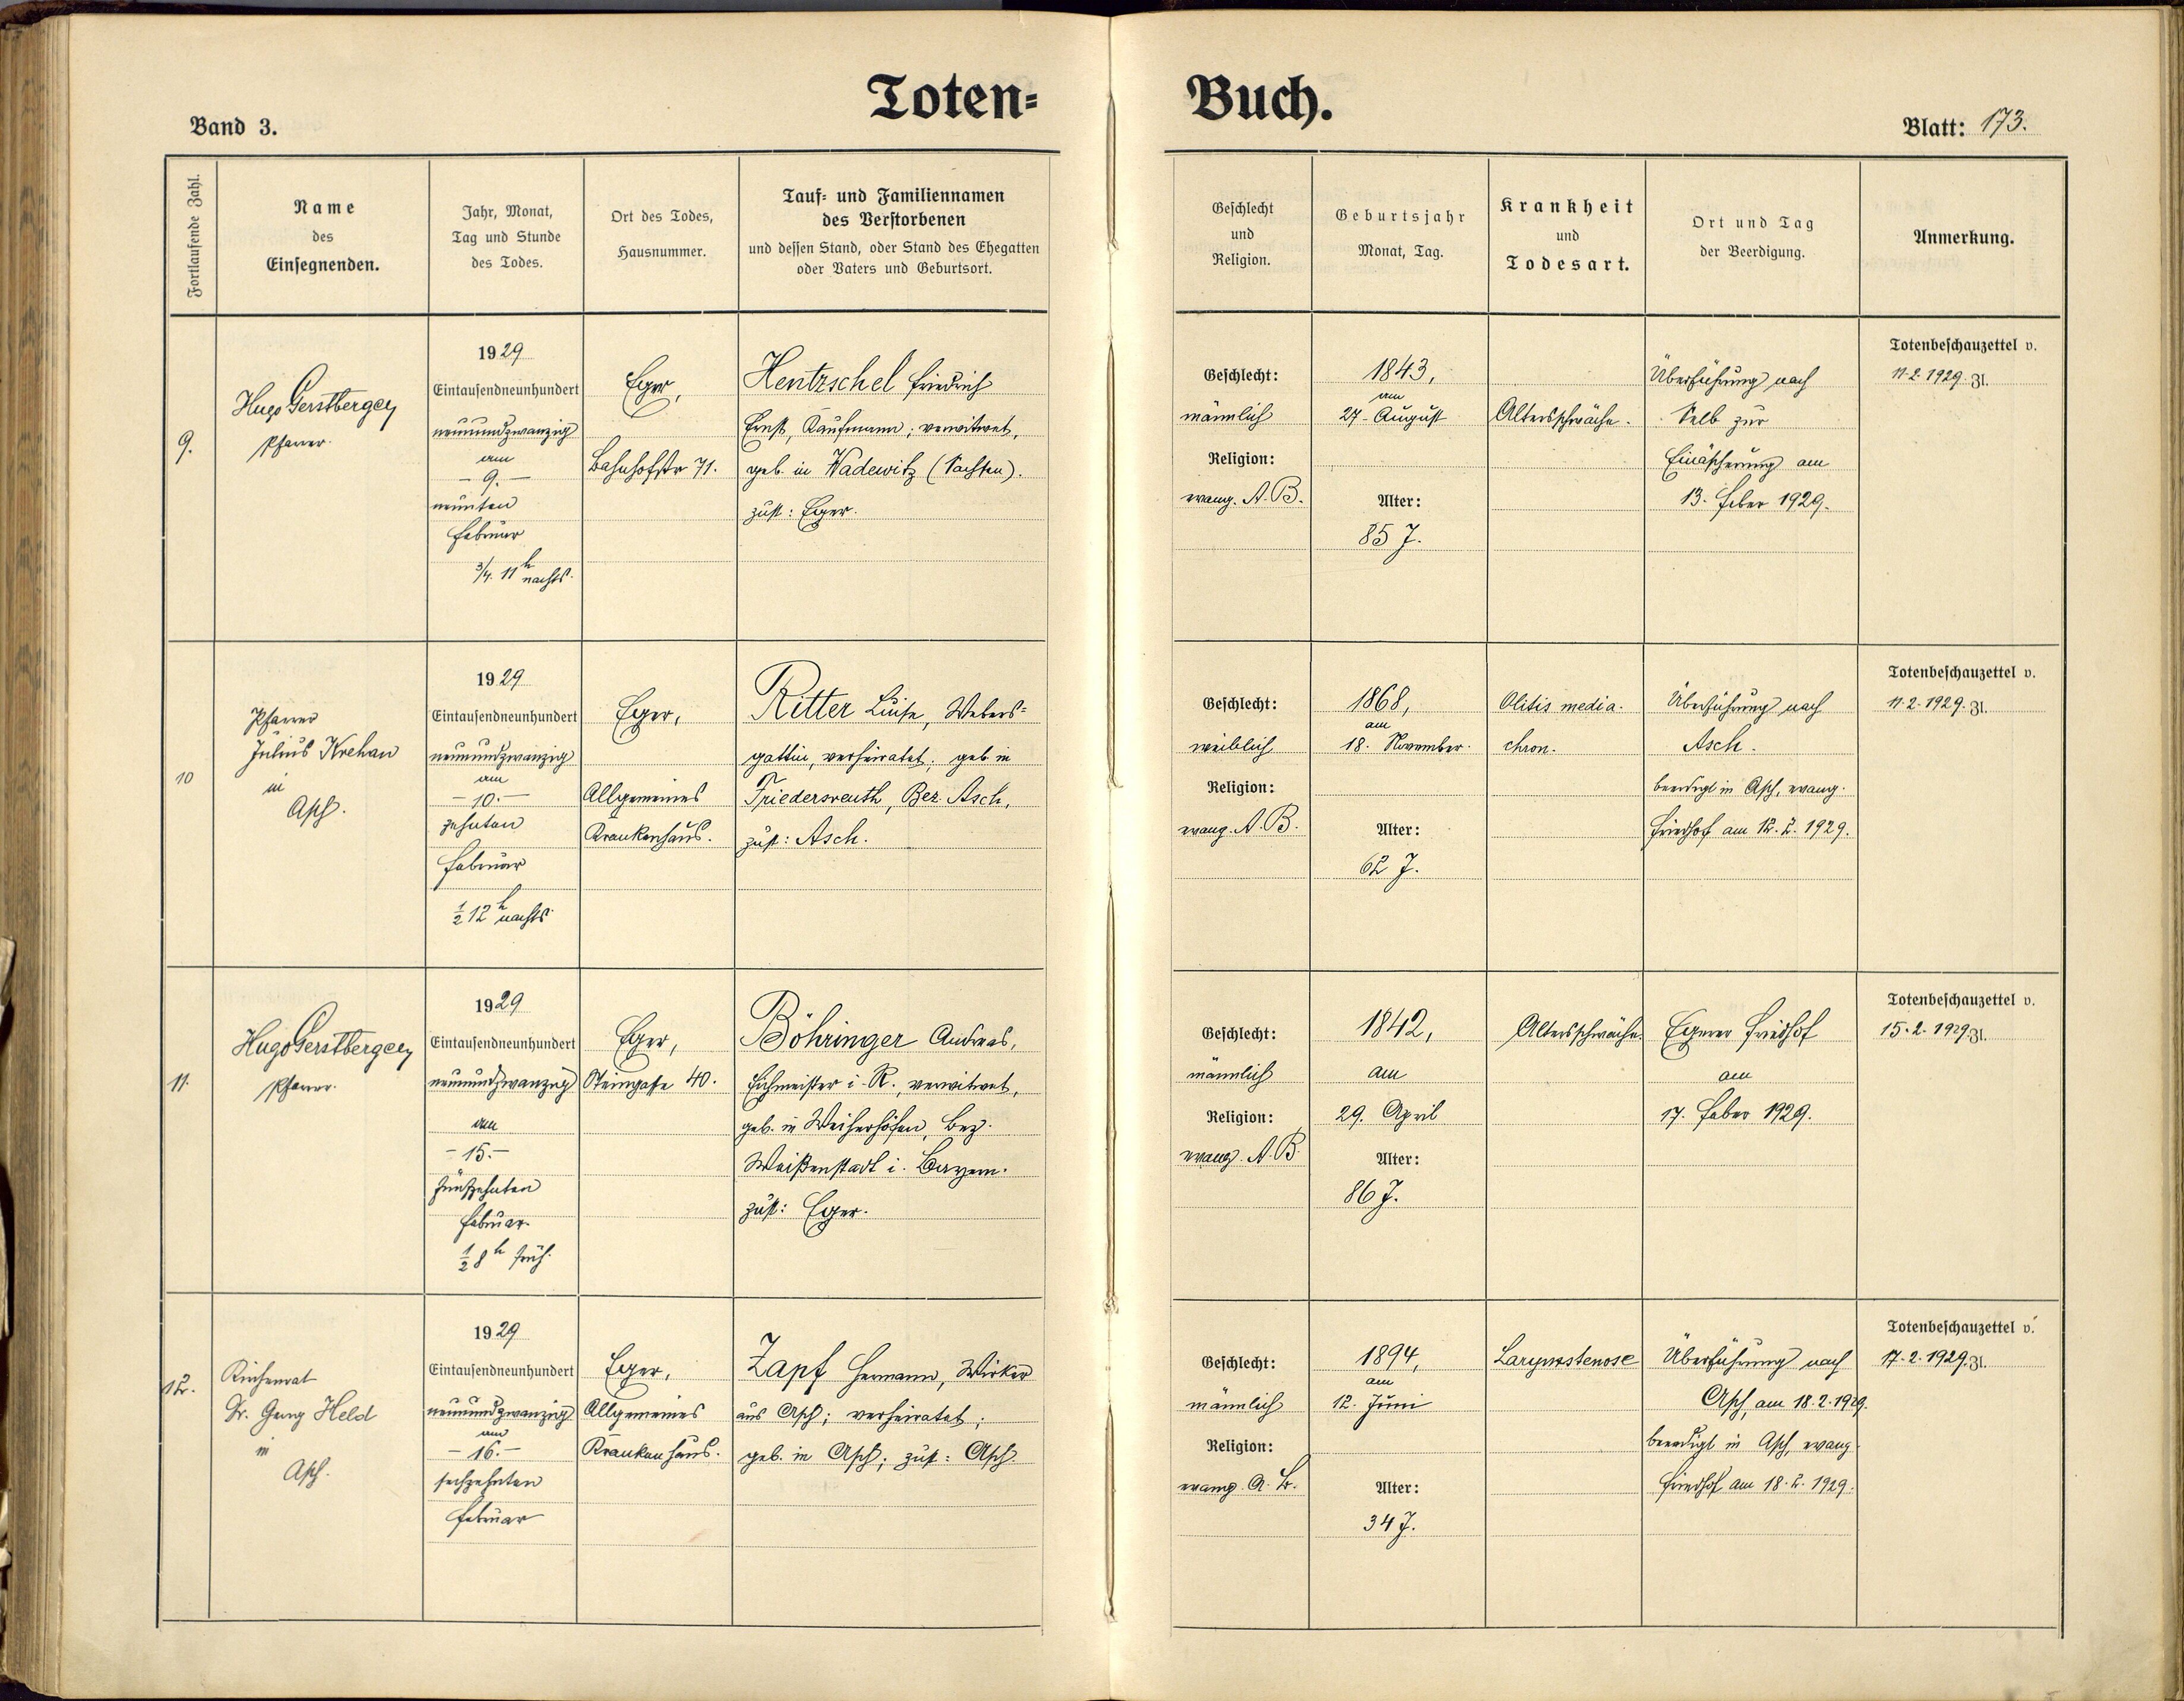 Toten-Buch.
Band 3.
Blatt: 173.
Fortlaufende Zahl.
Name
des
Einsegnenden.
Jahr, Monat,
Tag und Stunde
des Todes.
Ort des Todes,
Hausnummer.
Tauf- und Familiennamen
des Verstorbenen
und dessen Stand, oder Stand des Ehegatten
oder Vaters und Geburtsort.
Geschlecht
und
Religion.
Geburtsjahr
Monat, Tag.
Krankheit
und
Todesart.
Ort und Tag
der Beerdigung.
Anmerkung.
9.
Hugo Gerstberger
Pfarrer.
1929
Eintausendneunhundert
neunundzwanzig
am
- 9. -
neunten
Februar
3/4 11h nachts.
Eger,
Bahnhofstr 71.
Hentzschel Friedrich
Ernst, Kaufmann; verwitwet,
geb. in Wadewitz (Sachsen).
zust: Eger.
Geschlecht:
männlich
Religion:
evang. A. B.
1843,
am
27. August
Alter:
85 J.
Altersschwäche.
Überführung nach
Selb zur
Einäscherung am
13. Feber 1929.
Totenbeschauzettel v.
11.2.1929. Zl.
10
Pfarrer
Julius Krehan
in
Asch.
1929
Eintausendneunhundert
neunundzwanzig
am
- 10. -
zehnten
Februar
1/2 12h nachts.
Eger,
Allgemeines
Krankenhaus.
Ritter Luise, Webers-
gattin, verheiratet; geb. in
Friedersreuth, Bez. Asch,
zust: Asch.
Geschlecht:
weiblich
Religion:
evang. A. B.
1868,
am
18. November.
Alter:
62 J.
Otitis media.
chron.
Überführung nach
Asch.
beerdigt in Asch, evang.
Friedhof am 12. 2. 1929.
Totenbeschauzettel v.
11.2.1929. Zl.
11.
Hugo Gerstberger
Pfarrer.
1929
Eintausendneunhundert
neunundzwanzig
am
- 15. -
fünfzehnten
Februar.
1/2 8h früh.
Eger,
Steingasse 40.
Böhringer Andreas,
Eichmeister i. R., verwitwet,
geb. in Weiherhöfen, Bez.
Weißenstadt i. Bayern.
zust: Eger.
Geschlecht:
männlich
Religion:
evang. A. B.
1842,
am
29. April
Alter:
86 J.
Altersschwäche.
Egerer Friedhof
am
17. Feber 1929.
Totenbeschauzettel v.
15.2.1929. Zl.
12.
Kirchenrat
Dr. Georg Held
in
Asch.
1929
Eintausendneunhundert
neunundzwanzig
am
- 16. -
sechzehnten
Februar
Eger,
Allgemeines
Krankenhaus.
Zapf Hermann, Wirker
aus Asch; verheiratet;
geb. in Asch; zust: Asch.
Geschlecht:
männlich
Religion:
evang. A. B.
1894,
am
12. Juni
Alter:
34 J.
Larynxstenose
Überführung nach
Asch, am 18.2.1929.
beerdigt in Asch, evang.
Friedhof am 18. 2. 1929.
Totenbeschauzettel v.
17.2.1929. Zl.